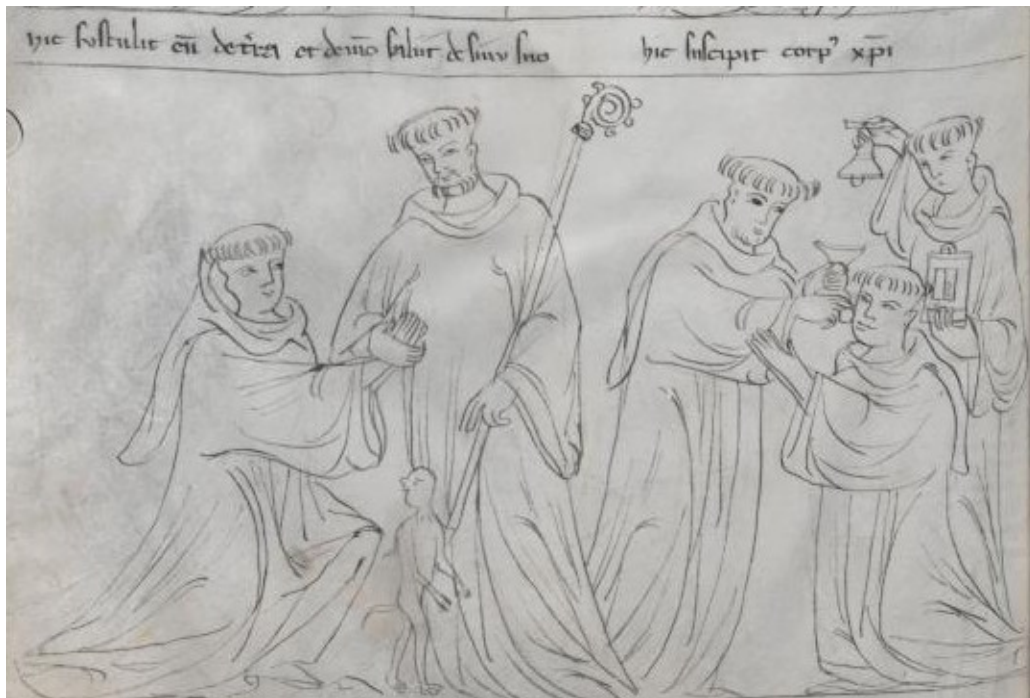 hic sustulit eū de tͥra et demō saliit de sinu suo
hic suscipit corpꝰ xp̄i